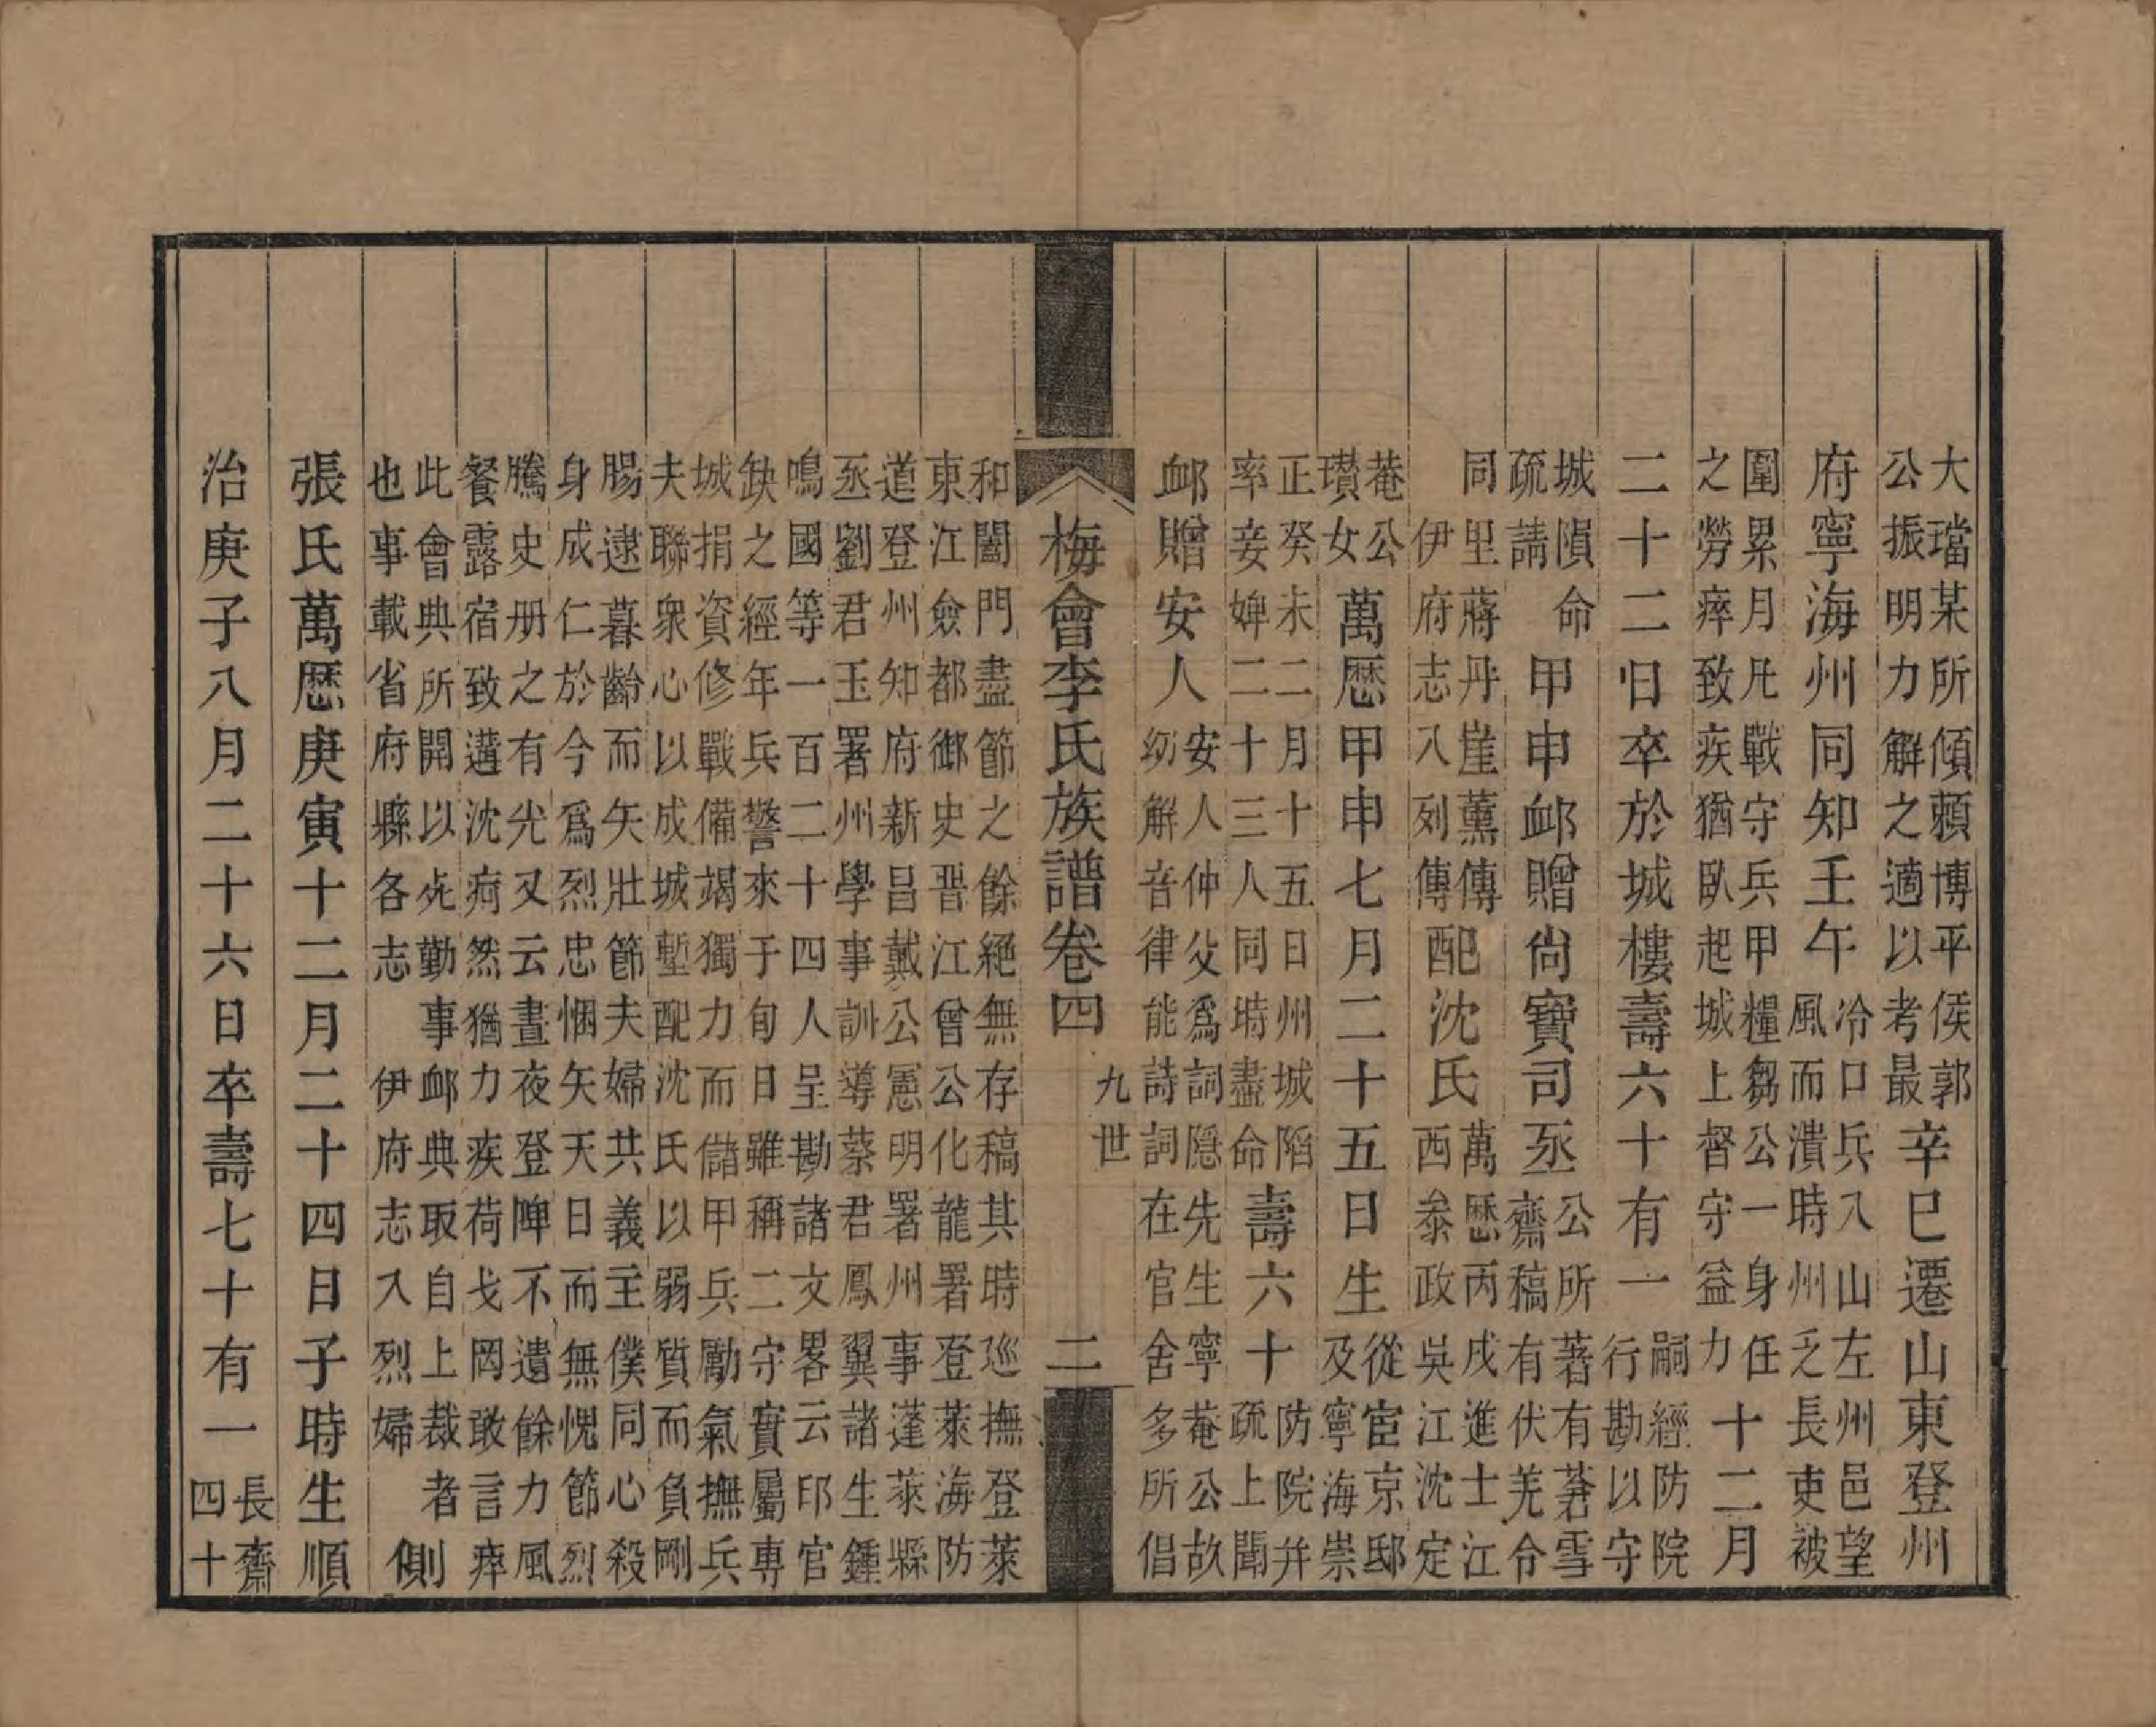 大璫某所傾賴博平侯郭
公振明力解之適以考最
辛巳遷山東登州
府寧海州同知壬午
冷口兵入山左州邑望
風而潰時州乏長吏被
圍累月凡戰守兵甲糧芻公一身任
之勞瘁致疾猶臥起城上督守益力
十二月
二十二日卒於城樓壽六十有一
嗣經防院
行勘以守
城隕命
疏請
甲申卹贈尚寶司丞
公所著有蓍雪
齋稿有伏羌令
同里蔣丹崖薰傳
伊府志入列傳
配沈氏
萬曆丙戌進士江
西叅政吳江沈定
菴公
瓚女
萬曆甲申七月二十五日生
從宦京邸
及寧海崇
正癸未二月十五日州城陷
率妾婢二十三人同時盡命
壽六十
防院并
疏上聞
卹贈安人
安人仲父爲詞隱先生寧菴公故
幼解音律能詩詞在官舍多所倡
梅會李氏族譜卷四 九世 二
和闔門盡節之餘絕無存稿其時巡撫登萊
東江僉都御史晋江曾公化龍署登萊海防
道登州知府新昌戴公憲明署州事蓬萊縣
丞劉君玉署州學事訓導蔡君鳳翼諸生鍾
鳴國等一百二十四人呈勘諸文畧云邱官
缺之經年兵警來于旬日雖稱二守實屬專
城捐資修戰備竭獨力而儲甲兵勵氣撫兵
夫聯衆心以成城塹配沈氏以弱質而負剛
腸逮暮齡而矢壯節夫婦共義主僕同心殺
身成仁於今爲烈忠悃矢天日而無愧節烈
騰史册之有光又云晝夜登陴不遺餘力風
餐露宿致遘沈疴然猶力疾荷戈罔敢言瘁
此會典所開以死勤事卹典取自上裁者
也事載省府縣各志 伊府志入烈婦
側
張氏萬曆庚寅十二月二十四日子時生順
治庚子八月二十六日卒壽七十有一
長齋
四十